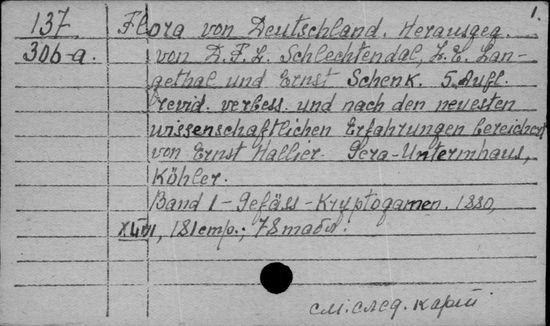 137 Flora von Deutschland. Herausgeg. 1.
306-a. von D.F.L. Schlechtendal, L.E. Lan-
gethal und Ernst Schenk. 5. Aufl.
revid. verbess. und nach den neuesten
wissenschaftlichen Erfahrungen bereichert
von Ernst Hallier. Gera-Untermhaus,
Köhler.
Band 1 - Gefäss-Kryptogamen. 1880,
181 стр.; 78 табл.
см. след. карт